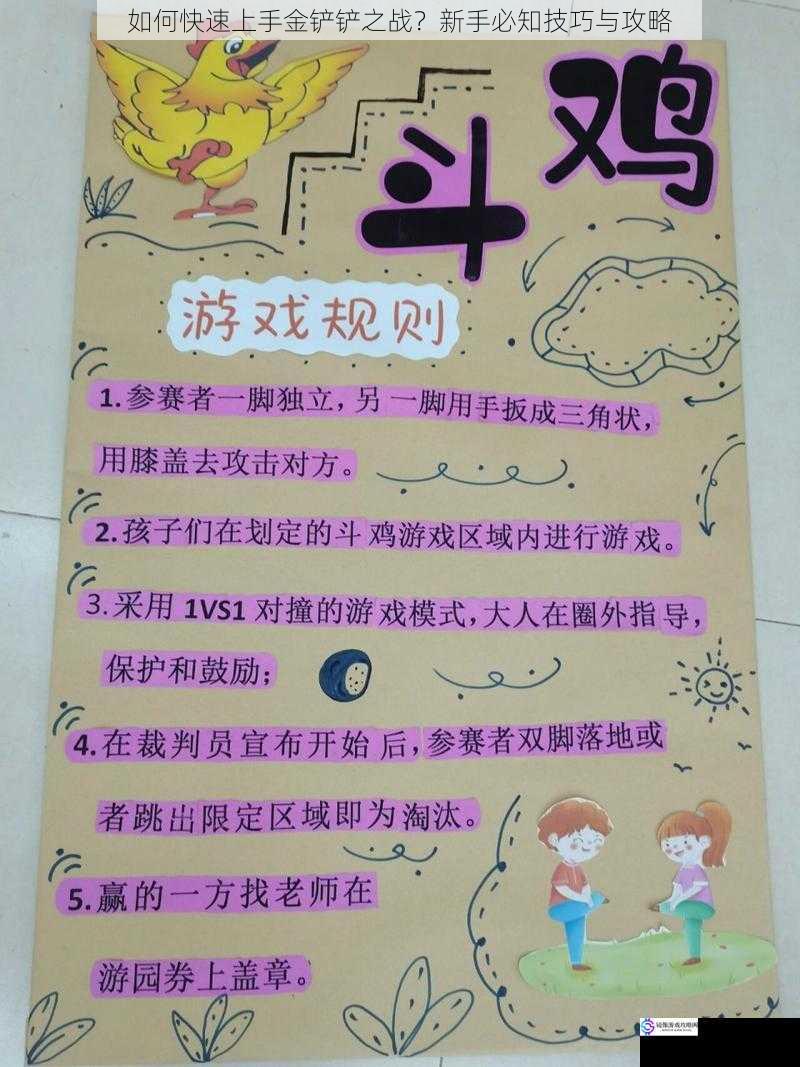 如何快速上手金铲铲之战？新手必知技巧与攻略
斗鸡
游戏规则
1.参赛者一脚独立，另一脚用手扳成三角状，
用膝盖去攻击对方。
2.孩子们在划定的斗鸡游戏区域内进行游戏。
3.采用 1VS1 对撞的游戏模式，大人在圈外指导，
保护和鼓励；
4.在裁判员宣布开始后，参赛者双脚落地或
者跳出限定区域即为淘汰。
5.赢的一方找老师在
游园券上盖章。